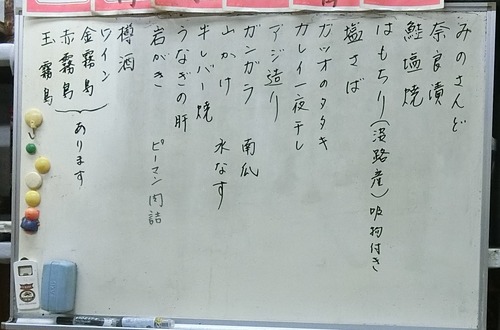 みのさんど
奈良漬
鮭塩焼
はもちり(淡路産)吸物付き
塩さば
カツオのタタキ
カレイ一夜干し
アジ造り
ガンガラ 南瓜
山かけ 水なす
牛レバー焼
うなぎの肝
岩がき ピーマン肉詰
樽酒
ワイン
金霧島
赤霧島
玉霧島
あります